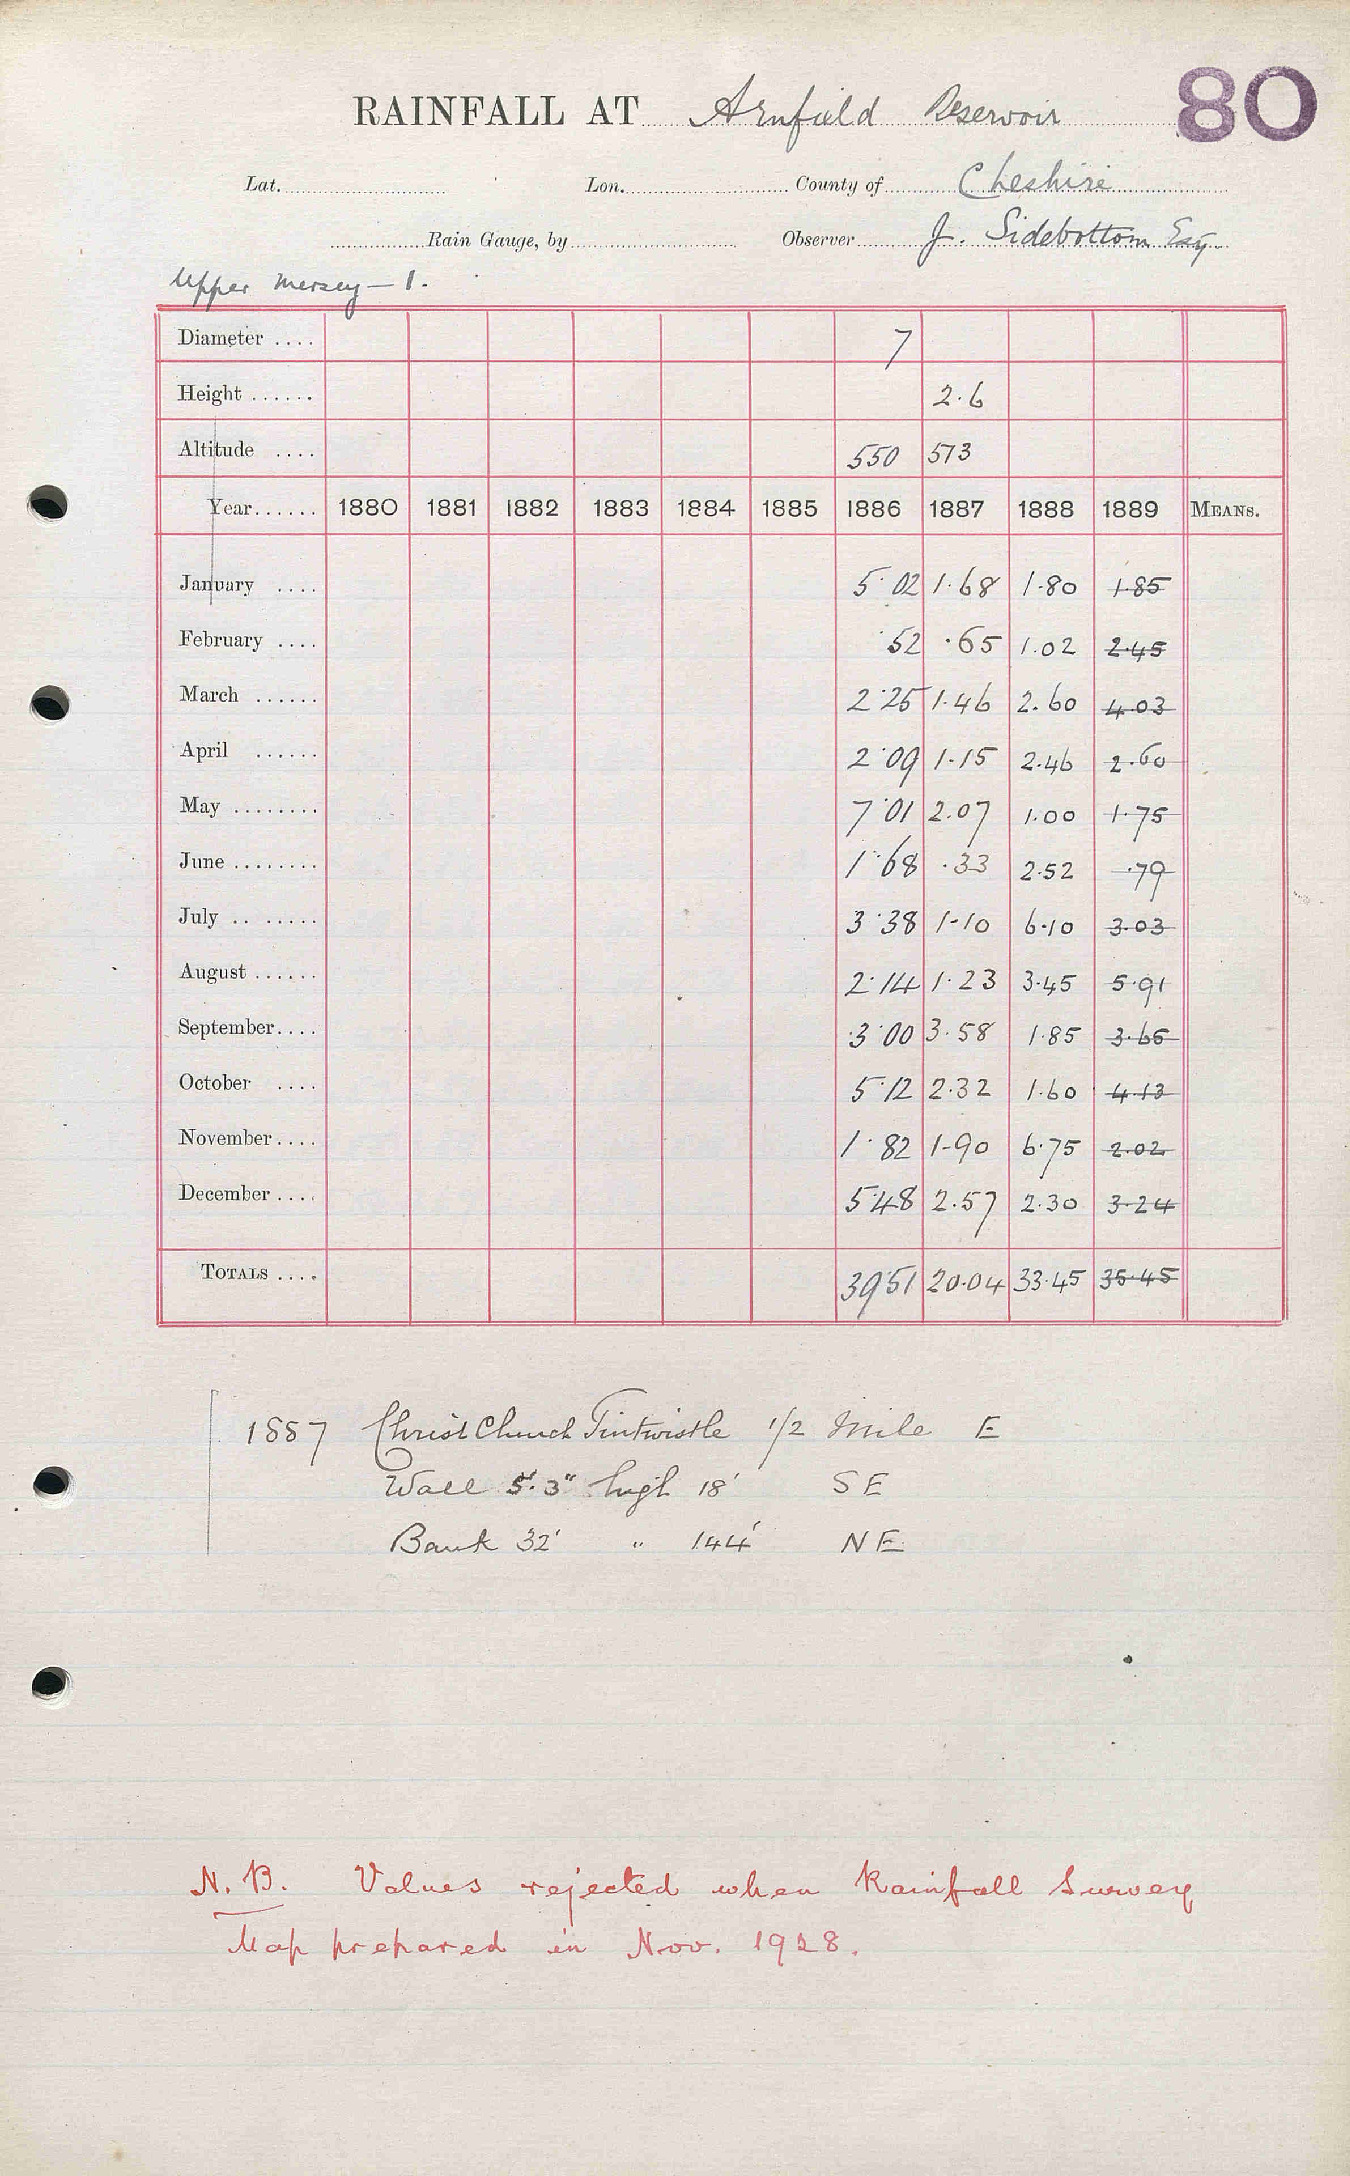 80
RAINFALL AT Arnfield Reservoir
Lat. Lon. County of Cheshire
Rain Gauge, by Observer J. Sidebottom Esq.
Upper Mersey – 1.
Diameter .... 7
Height ...... 2.6
Altitude .... 550 573
Year...... 1880 1881 1882 1883 1884 1885 1886 1887 1888 1889 MEANS.
January .... 5.02 1.68 1.80 1.85
February .... .52 .65 1.02 2.45
March ...... 2.25 1.46 2.60 4.03
April ...... 2.09 1.15 2.46 2.60
May ........ 7.01 2.07 1.00 1.75
June ........ 1.68 .33 2.52 .79
July .. ..... 3.38 1.10 6.10 3.03
August ...... 2.14 1.23 3.45 5.91
September.... 3.00 3.58 1.85 3.65
October .... 5.12 2.32 1.60 4.13
November.... 1.82 1.90 6.75 2.02
December .... 5.48 2.57 2.30 3.24
TOTALS .... 39.51 20.04 33.45 35.45
1887 Christ Church Tintwistle 1/2 Mile E
Wall 5'.3" high 18' SE
Bank 32' " 144' NE
N.B. Values rejected when Rainfall Survey
Map prepared in Nov. 1928.